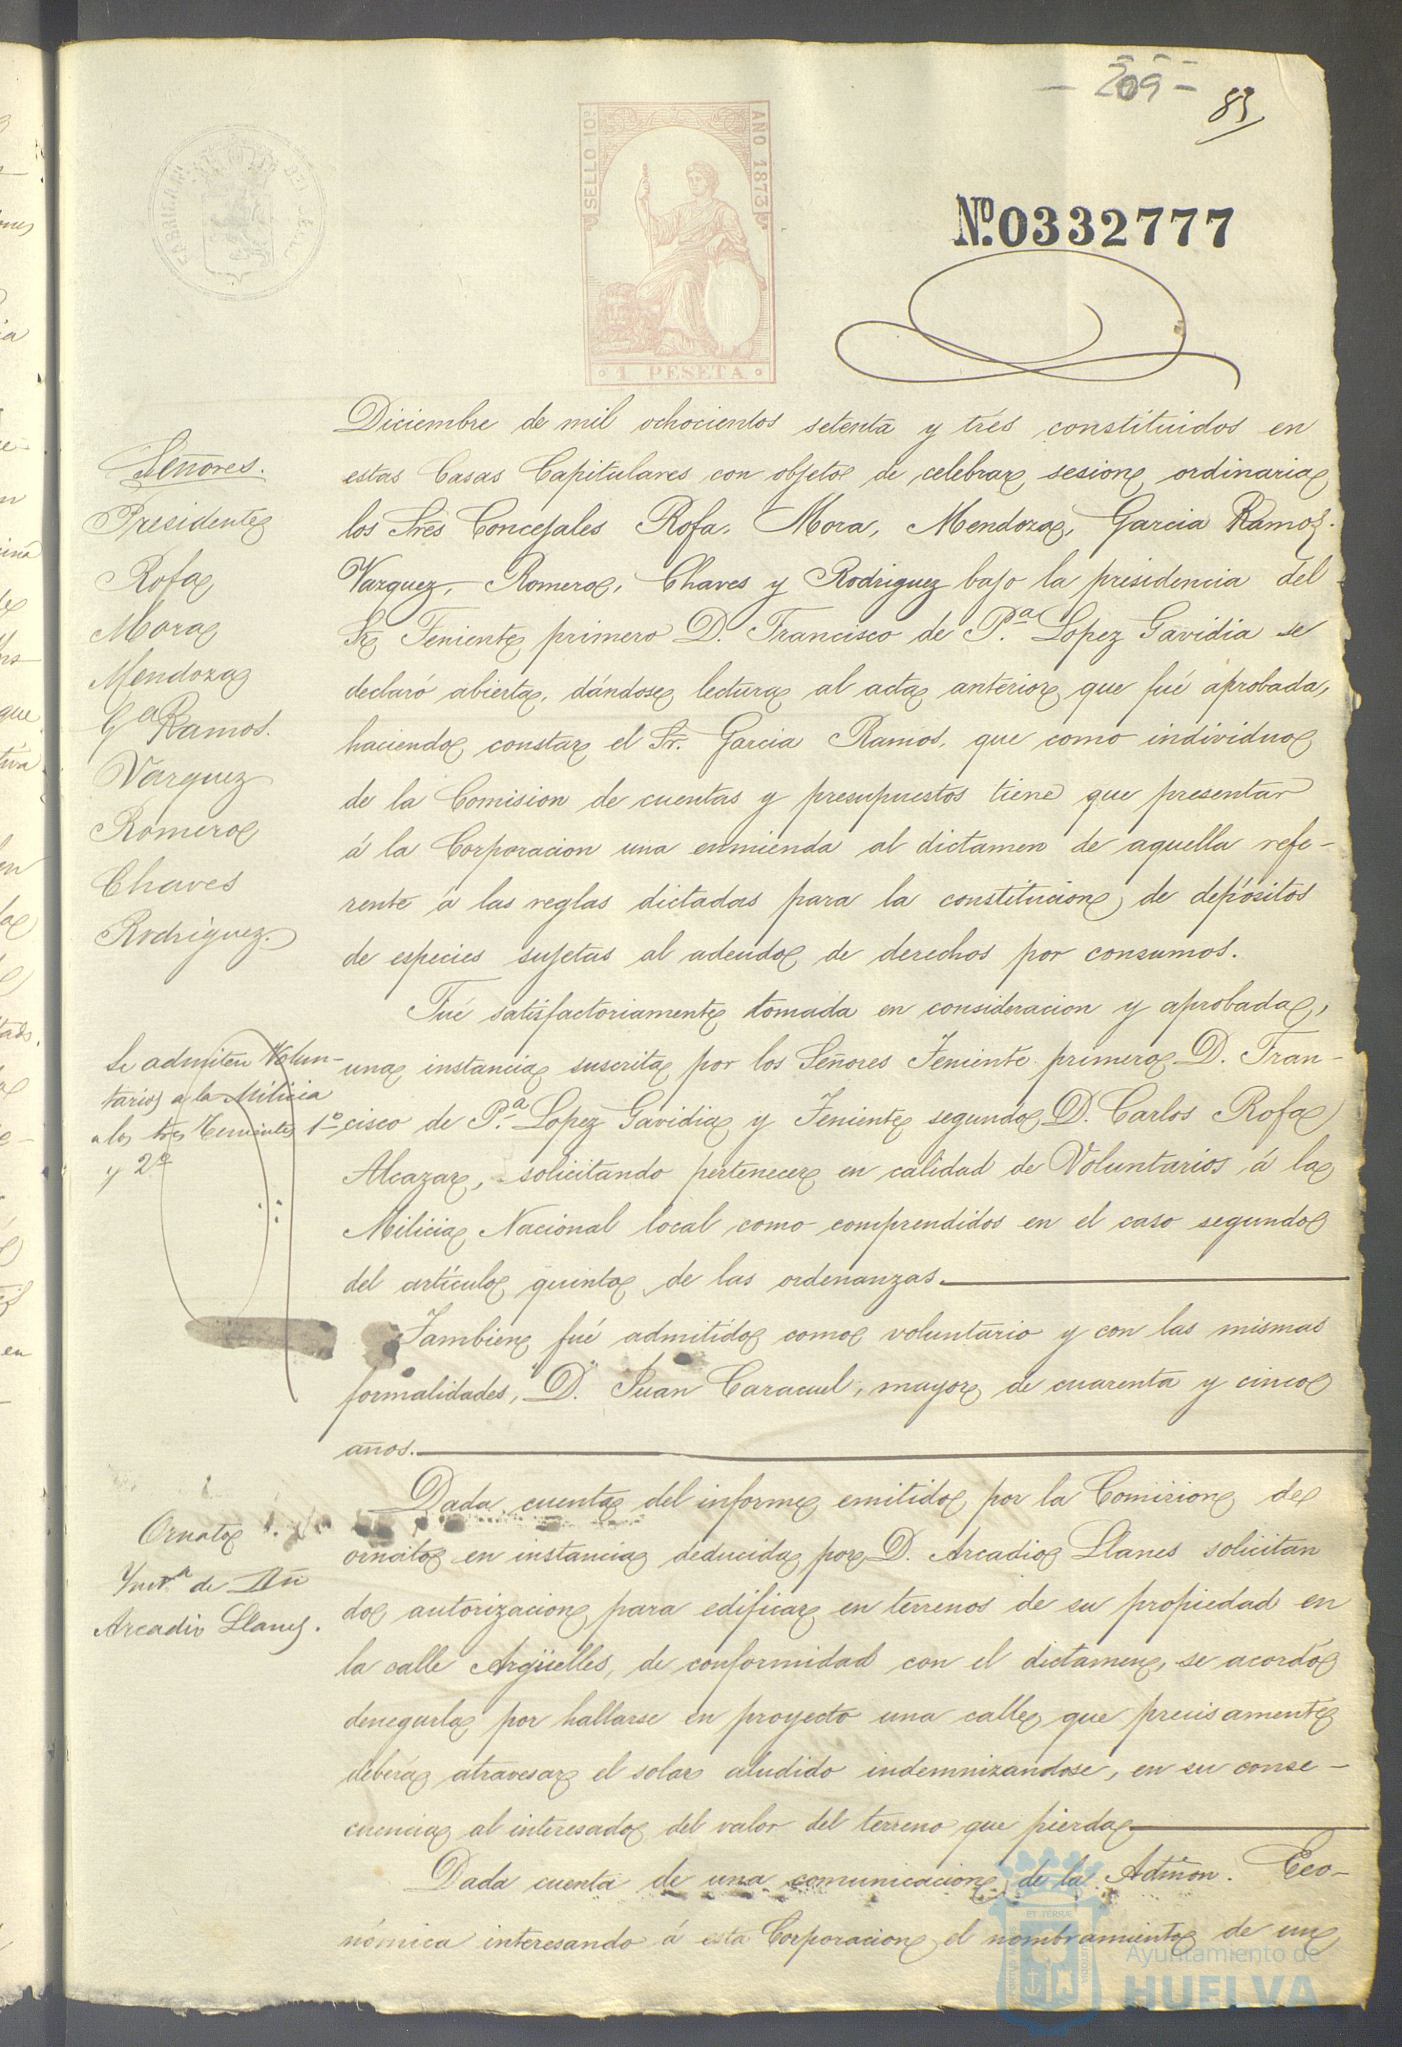 - 209 -
83
SELLO 10º
AÑO 1873
1 PESETA
Nº.0332777
Señores.
Presidente
Rofa
Mora
Mendoza
Gª Ramos.
Vazquez
Romero
Chaves
Rodriguez.
Diciembre de mil ochocientos setenta y tres constituidos en
estas Casas Capitulares con objeto de celebrar sesion ordinaria
los Sres Concejales Rofa, Mora, Mendoza, Garcia Ramos.
Vazquez, Romero, Chaves y Rodriguez bajo la presidencia del
Sr Teniente primero D. Francisco de P.ª Lopez Gavidia se
declaró abierta, dándose lectura al acta anterior que fué aprobada,
haciendo constar el Sr. Garcia Ramos, que como individuo
de la Comision de cuentas y presupuestos tiene que presentar
á la Corporacion una enmienda al dictamen de aquella refe-
rente á las reglas dictadas para la constitucion de depósitos
de especies sujetas al adeudo de derechos por consumos.
Fué satisfactoriamente tomada en consideracion y aprobada,
Se admiten Volun-
tarios a la Milicia
a los tres Tenientes 1º
y 2º
una instancia suscrita por los Señores Teniente primero D. Fran-
cisco de P.ª Lopez Gavidia y Teniente segundo D. Carlos Rofa
Alcazar, solicitando pertenecer en calidad de Voluntarios á la
Milicia Nacional local como comprendidos en el caso segundo
del artículo quinto de las ordenanzas.
Tambien fué admitido como voluntario y con las mismas
formalidades, D. Juan Caracuel, mayor de cuarenta y cinco
años.
Ornato
de Dn
Arcadio Llanes.
Dada cuenta del informe emitido por la Comision de
ornato en instancia deducida por D. Arcadio Llanes solicitan
do autorizacion para edificar en terrenos de su propiedad en
la calle Argüelles, de conformidad con el dictamen, se acordó
denegarla por hallarse en proyecto una calle que precisamente
deberá atravesar el solar aludido indemnizandose, en su conse-
cuencia al interesado del valor del terreno que pierda
Dada cuenta de una comunicacion de la Admon. Eco-
nómica interesando á esta Corporacion el nombramiento de un
Ayuntamiento de
HUELVA